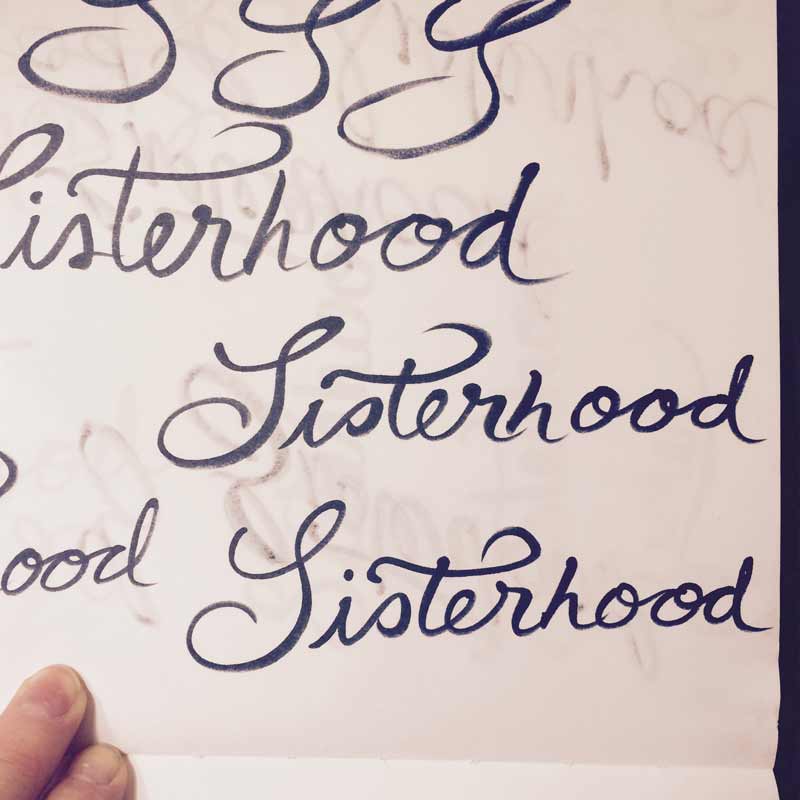 S S S
Sisterhood
Sisterhood
ood Sisterhood